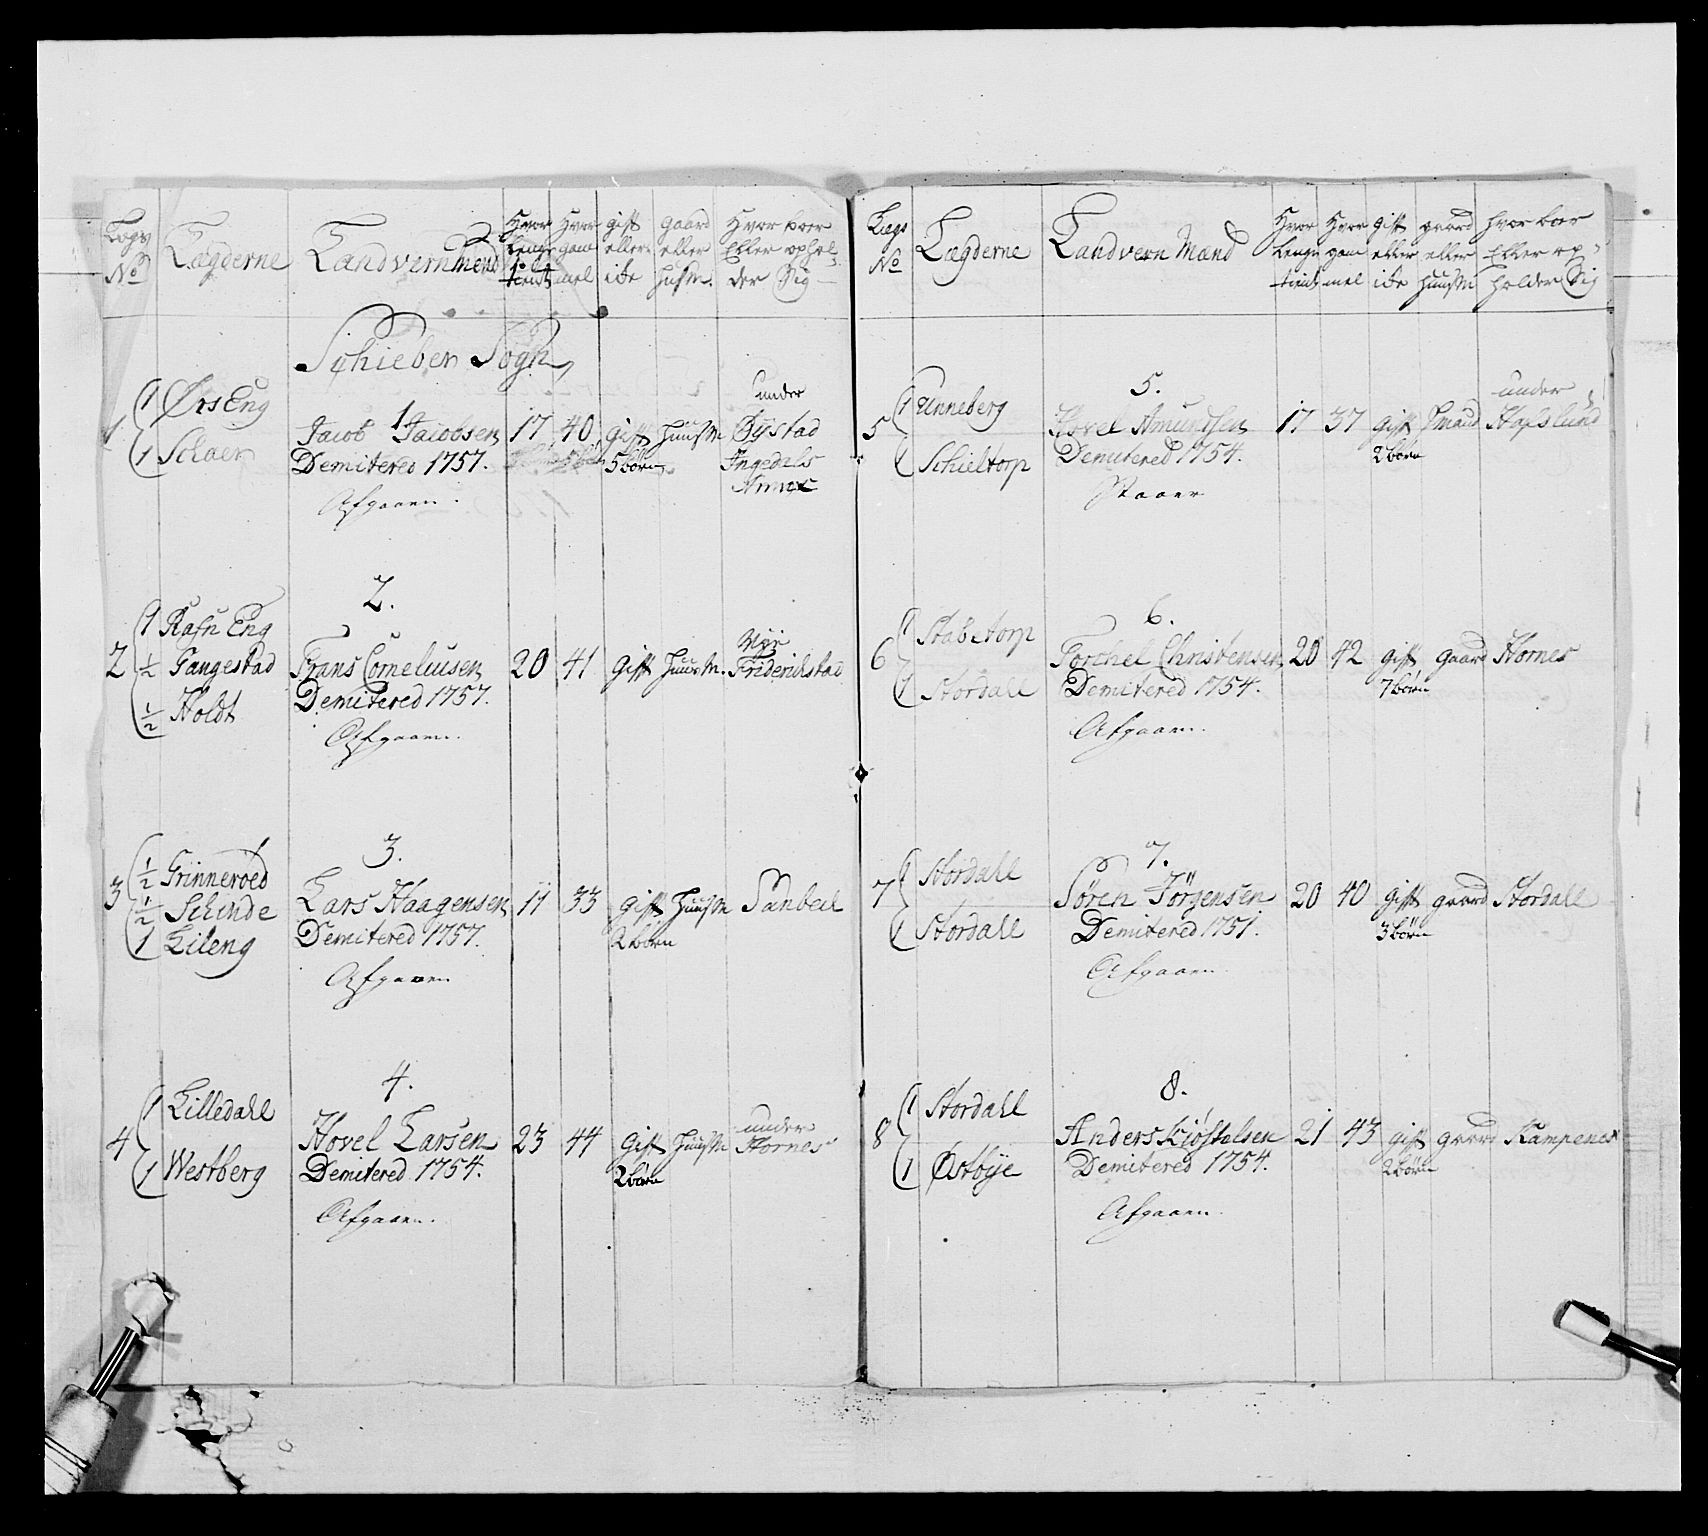 Lægs No
Lægderne
Landvernmend
Hvor lenge tient
Hvor gammel
gift eller ície
gaard eller husm.
Hvor boer Eller ophol-der Sig
Schieber Sogn
1
1 Ørs Eng
1 Schaen
1
Jacob Jacobsen
Demitered 1757.
Afgaaen.
17 40 gift huusm
5 børn
under
Øystad
Ingedals
Annex
2
1 Rafn Eng
1/2 Tangestad
1/2 Holdt
2.
Frans Corneliusen
Demitered 1757.
Afgaaen.
20 41 gift huusm. Friderichstad
3
1/2 Grinneröed
1/2 Schinde
1 Lileng
3.
Lars Haagensen
Demitered 1757.
Afgaaen
11 33 gift huusm Sanbeck
2 børn
4
1 Lilledahl
1 Westberg
4.
Hovel Larsen
Demitered 1754.
Afgaaen.
23 44 gift huusm
2 børn
under
Hornes
Lægs No
Lægderne
Landvern Mænd
Hvor lenge tient
Hvor gammel
gift eller icke
gaard eller huusm
hvor boer Eller op-holder Sig
5
1 Unneberg
1 Schieltorp
5.
Hovel Amundsen
Demitered 1754.
Staaer
17 37 gift
2 børn
under
Hafslund
6
1 Stabetorp
1 Stordahl
6.
Torchel Christensen
Demitered 1754.
Afgaaen.
20 42 gift gaard Hornes
7 børn
7
1 Stordahl
1 Stordahl
7.
Søren Jörgensen
Demitered 1751.
Afgaaen
20 40 gift gaard Stordall
3 børn
8
1 Stordahl
1 Østbÿe
8.
Anders Kiøstelsen
Demitered 1754.
Afgaaen
21 43 gift gaard Kampenes
2 børn